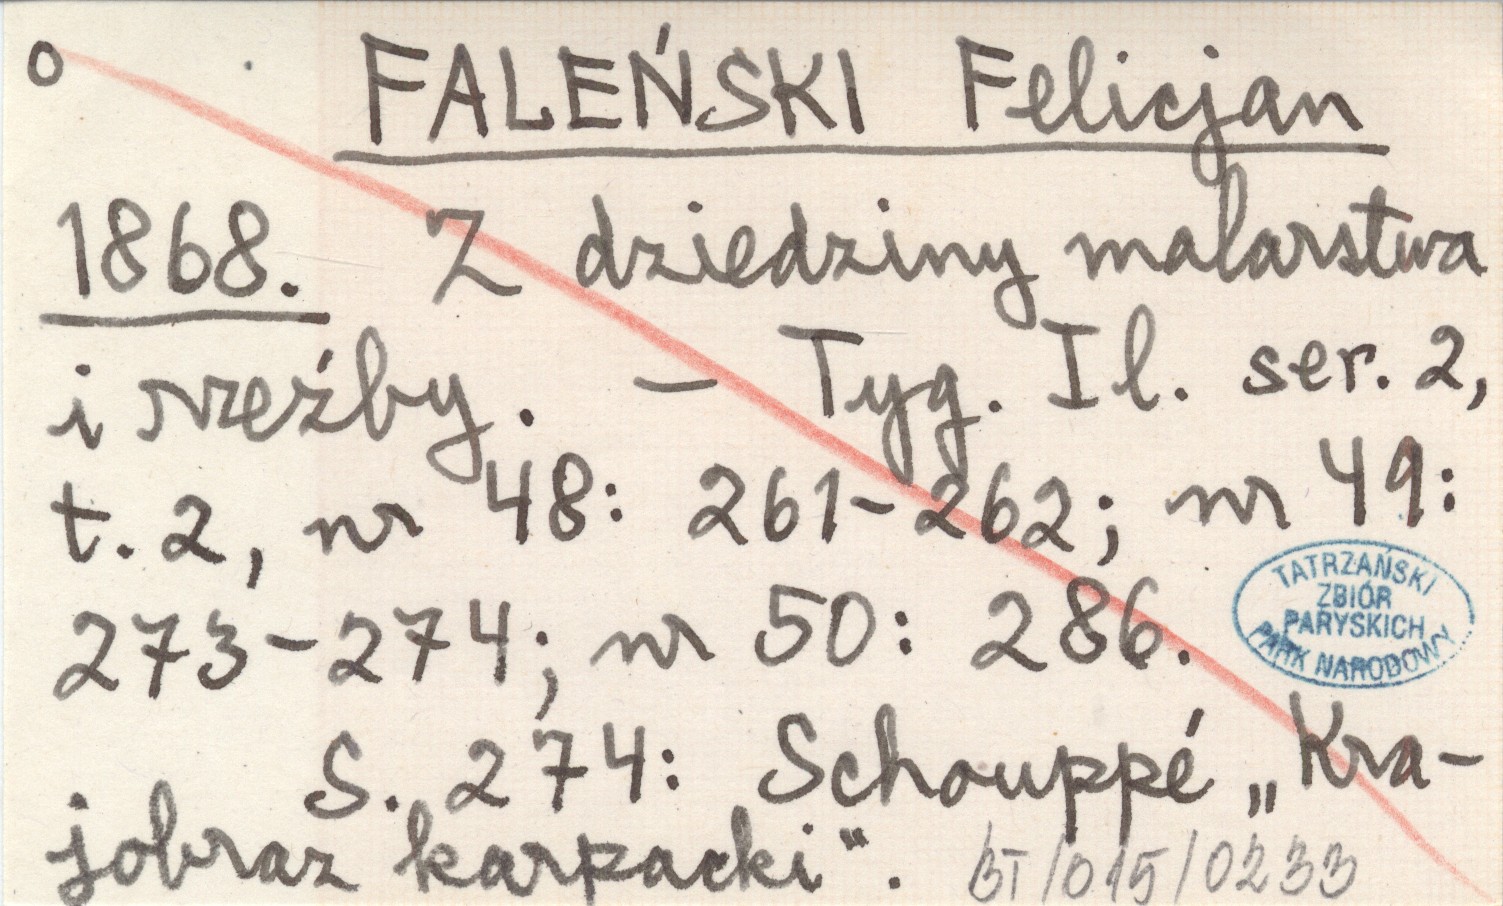 o FALEŃSKI Felicjan
1868. Z dziedziny malarstwa
i rzeźby. – Tyg. Il. ser. 2,
t. 2, nr 48: 261-262; nr 49:
273-274; nr 50: 286.
TATRZAŃSKI
ZBIÓR
PARYSKICH
PARK NARODOWY
S. 274: Schouppé „Kra-
jobraz karpacki“.
BT/015/0233